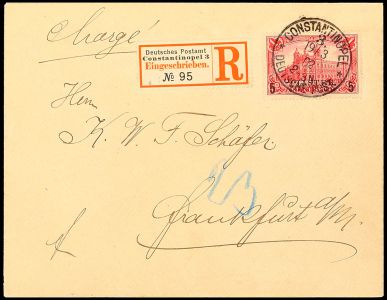 Chargé
Deutsches Postamt
Constantinopel 3
Eingeschrieben.
№ 95
R
CONSTANTINOPEL
5
5
Herrn
K. W. F. Schäfer
Frankfurt a/M.